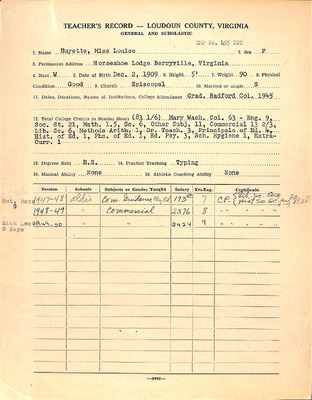 TEACHER'S RECORD — LOUDOUN COUNTY, VIRGINIA
GENERAL AND SCHOLASTIC
No. 455 220
1. Name Huyette, Miss Louise 2. Sex F
3. Permanent Address Horseshoe Lodge Berryville, Virginia
4. Race W 5. Date of Birth Dec. 2, 1909 6. Height 5' 7. Weight 90 8. Physical
Condition Good 9. Church Episcopal 10. Married or single S
11. Dates, Durations, Names of Institutions, College Attendance Grad. Radford Col. 1945
12. Total College Credits in Session Hours (83 1/6) Mary Wash. Col. 63 - Eng. 9,
Soc. St. 21, Math. 1.5, Sc. 6, Other Subj. 11, Commercial 13 2/3,
Lib. Sc. 6, Methods Arith. 1, Dr. Teach. 3, Principals of Ed. 4,
Hist. of Ed. 1, Phs. of Ed. 1, Ed. Psy. 3, Sch. Hygiene 1, Extra-
Curr. 1
13. Degrees Held B.S. 14. Practice Teaching Typing
15. Musical Ability None 16. Athletic Coaching Ability None
Session Schools Subjects or Grades Taught Salary Yrs. Exp. Certificate
1947-48 Aldie Com. Guidance Phy Ed 7 C.P.
1948-49 " Commercial 2376 8 " "
Sick Leave 1949-50 " " 2424 9 " "
9 days